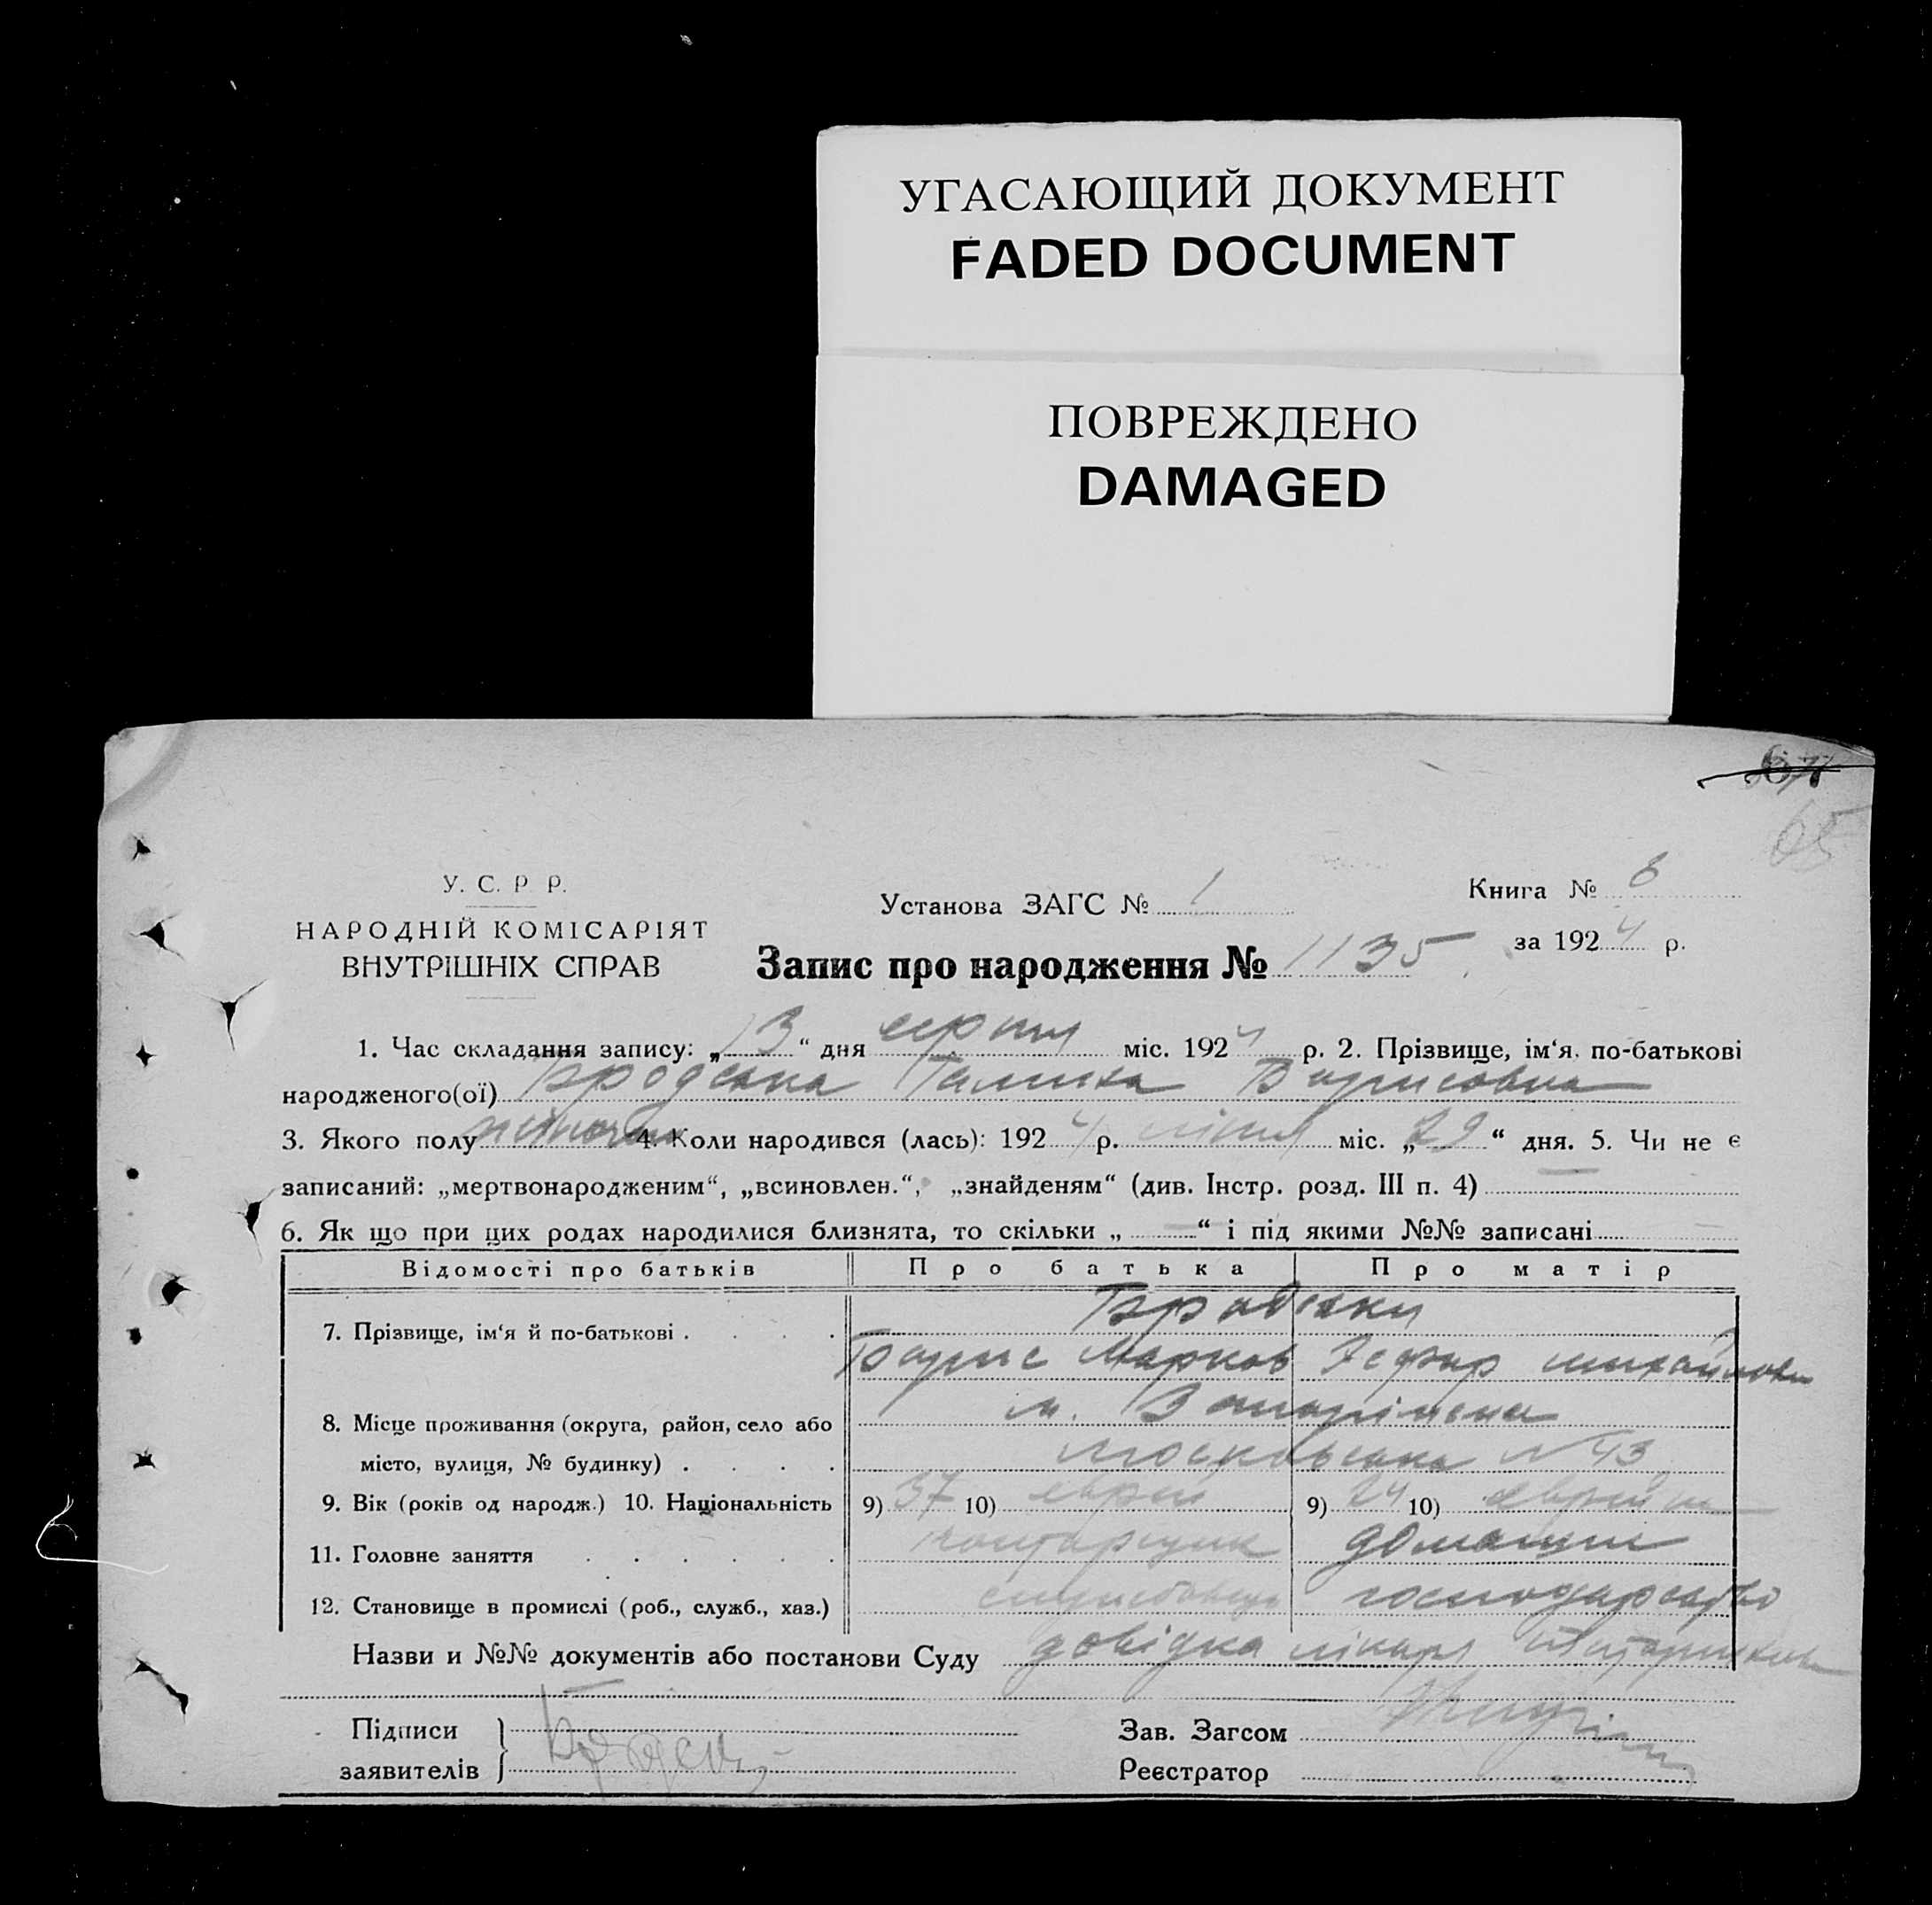 УГАСАЮЩИЙ ДОКУМЕНТ
FADED DOCUMENT
ПОВРЕЖДЕНО
DAMAGED
67
65
У. С. Р. Р.
НАРОДНІЙ КОМІСАРІЯТ
ВНУТРІШНІХ СПРАВ
Установа ЗАГС № 1
Книга № 6
за 1924 р.
Запис про народження № 1135
1. Час складання запису: „13“ дня серпня міс. 1924 р. 2. Прізвище, ім‘я, по-батькові
народженого(ої) Бродська Галина Борисовна
3. Якого полу жіночого 4. Коли народився (лась): 1924 р. липня міс. „29“ дня. 5. Чи не є
записаний: „мертвонародженим“, „всиновлен.“, „знайденям“ (див. Інстр. розд. III п. 4) —
6. Як що при цих родах народилися близнята, то скільки „—“ і під якими №№ записані
Відомості про батьків Про батька Про матір
7. Прізвище, ім‘я й по-батькові . . . . Бродські
Борис Марков Эсфир Михайлови
8. Місце проживання (округа, район, село або м.
місто, вулиця, № будинку) . . . . Московська № 43
9. Вік (років од народж.) 10. Національність 9) 37 10) єврей 9) 24 10) єврейка
11. Головне заняття . . . . . . конторщик домашнє
12. Становище в промислі (роб., служб., хаз.) службовець господарство
Назви и №№ документів або постанови Суду довідка лікаря
Підписи
заявителів
Зав. Загсом
Реєстратор